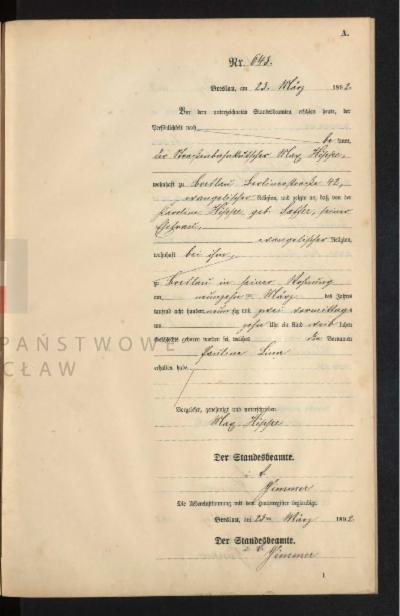 A.
Nr. 648.
Breslau, am 23. März 1892.
Vor dem unterzeichneten Standesbeamten erschien heute, der
Persönlichkeit nach be kannt,
der Straßenbahnkutscher Max Hippe,
wohnhaft zu Breslau, Berlinerstraße 42,
evangelischer Religion, und zeigte an, daß von der
Hippe, geb. seiner
Ehefrau,
evangelischer Religion,
wohnhaft bei ihm,
zu Breslau in seiner Wohnung
am neunzehn ten März des Jahres
tausend acht hundert neunzig und zwei Vormittags
um zehn Uhr ein Kind weib lichen
Geschlechts geboren worden sei, welches die Vornamen
Pauline
erhalten habe.
PAŃSTWOWE
CŁAW
Vorgelesen, genehmigt und unterschrieben
Max Hippe
Der Standesbeamte.
Die Übereinstimmung mit dem Hauptregister beglaubigt
Breslau, am 23ten März 1892
Der Standesbeamte.
1